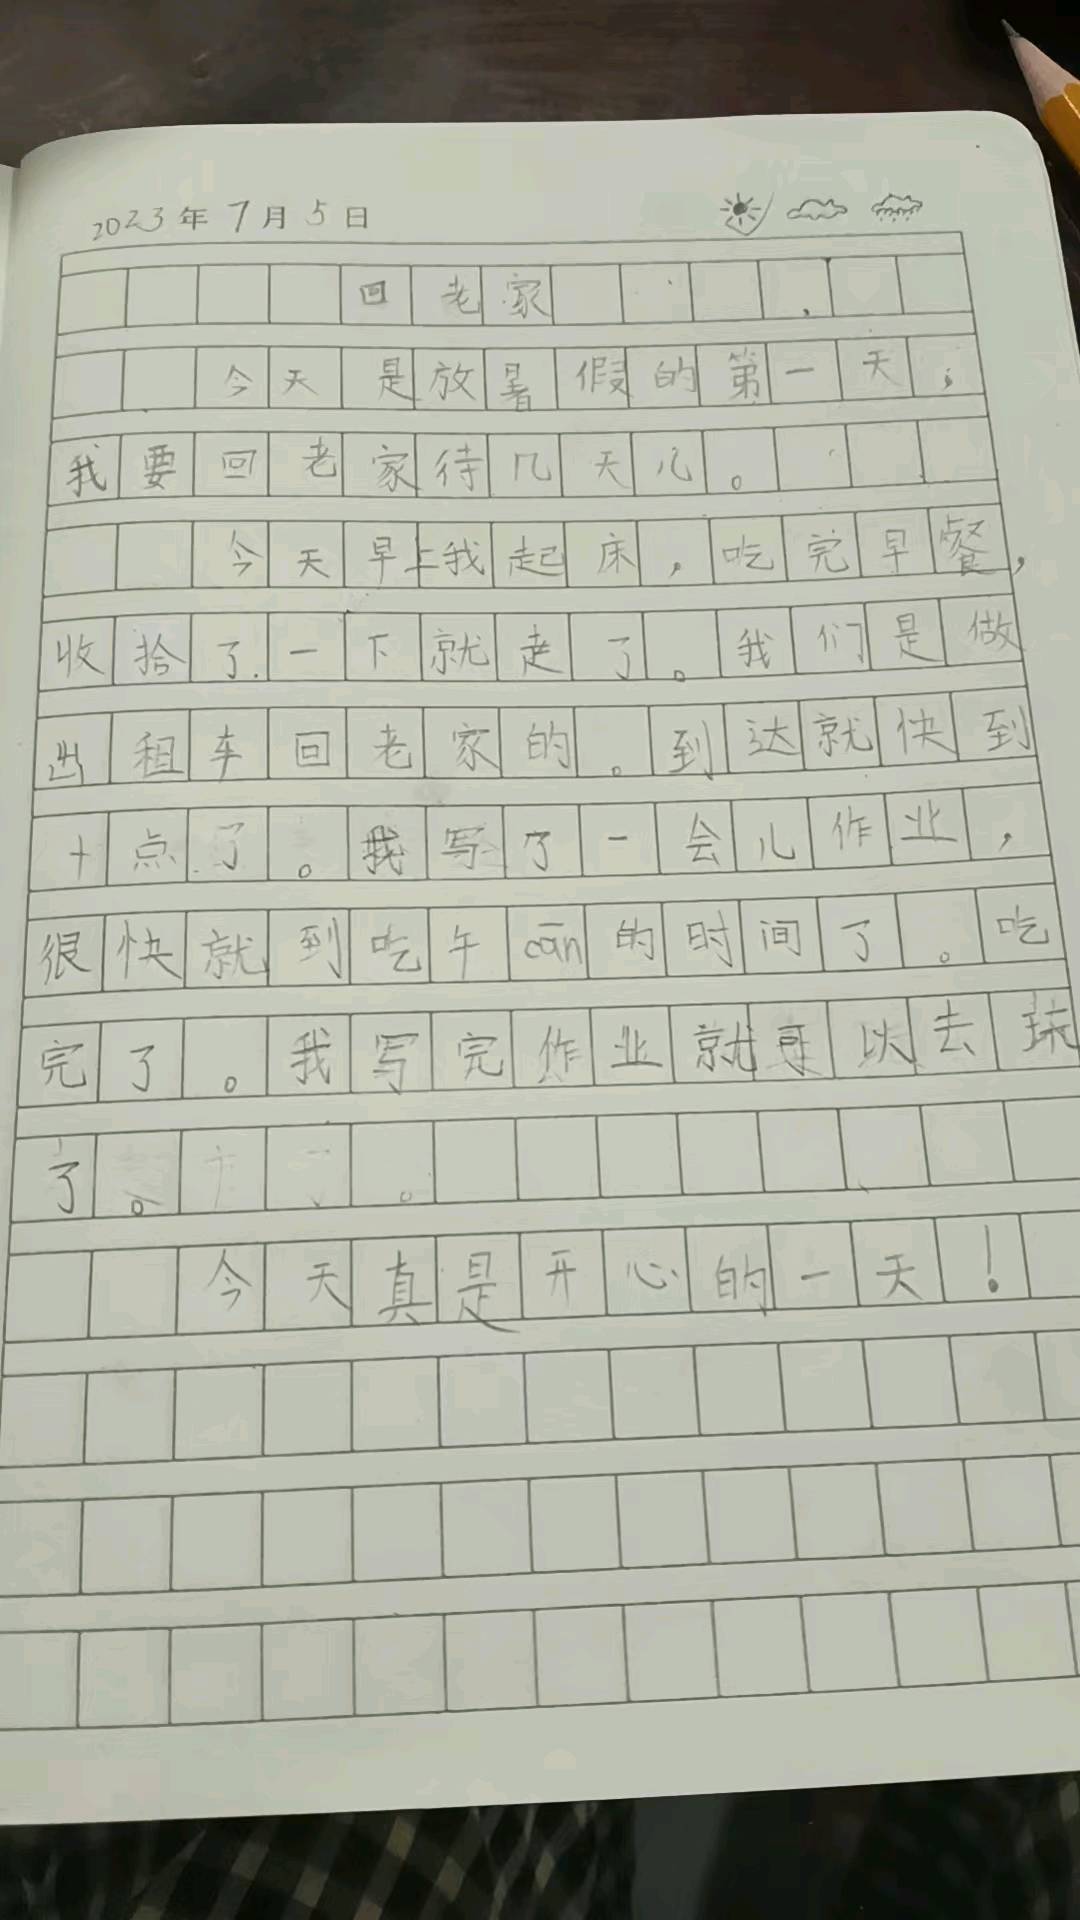 2023年7月5日
回老家
今天是放暑假的第一天，
我要回老家待几天儿。
今天早上我起床，吃完早餐，
收拾了一下就走了。我们是做
出租车回老家的。到达就快到
十点了。我写了一会儿作业，
很快就到吃午cān的时间了。吃
完了。我写完作业就可以去玩
了。
今天真是开心的一天！